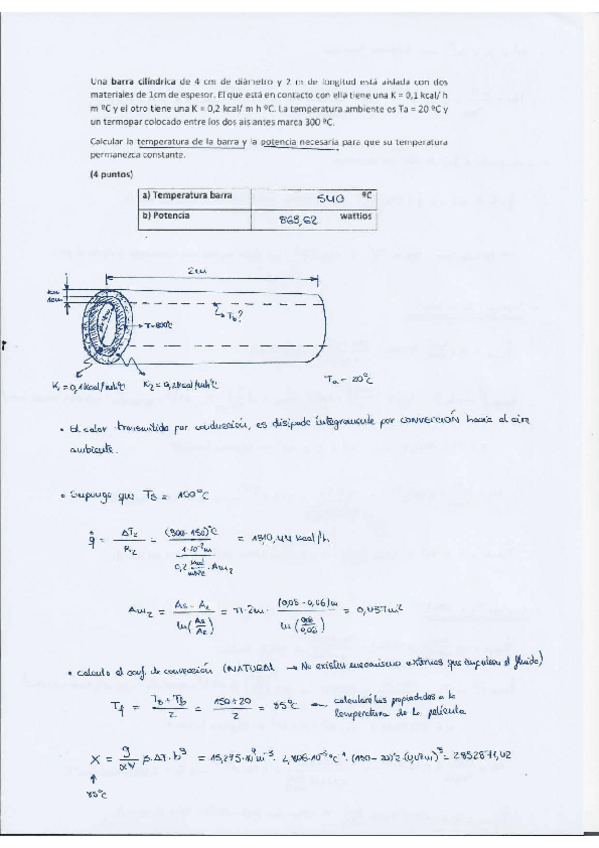 Una barra cilíndrica de 4 cm de diámetro y 2 m de longitud está aislada con dos
materiales de 1cm de espesor. El que está en contacto con ella tiene una K = 0,1 kcal/ h
m ºC y el otro tiene una K = 0,2 kcal/ m h ºC. La temperatura ambiente es Ta = 20 ºC y
un termopar colocado entre los dos aislantes marca 300 ºC.
Calcular la temperatura de la barra y la potencia necesaria para que su temperatura
permanezca constante.
(4 puntos)
a) Temperatura barra 540 ºC
b) Potencia 869,62 wattios
2m
1cm
Tb?
K1 = 0,1 kcal/mhºC K2 = 0,2 kcal/mhºC Ta = 20ºC
• El calor transmitido por conducción, es disipado íntegramente por CONVECCIÓN hacia el aire
ambiente.
• Supongo que Ts =
q = ΔT2 / R2 = (300-150)ºC / (1·10⁻²m / 0,2 kcal/mhºC · Aml2) = kcal/h.
Aml2 = As - A2 / ln(As/A2) = π·2m · (0,08 - 0,06)m / ln(0,08/0,06) = m²
• calculo el coef. de convección (NATURAL → No existen mecanismos externos que impulsen el fluido)
Tf = / 2 = 150+20 / 2 = 85ºC ← calcularé las propiedades a la
temperatura de la película
X = g/αν β·ΔT·
85ºC